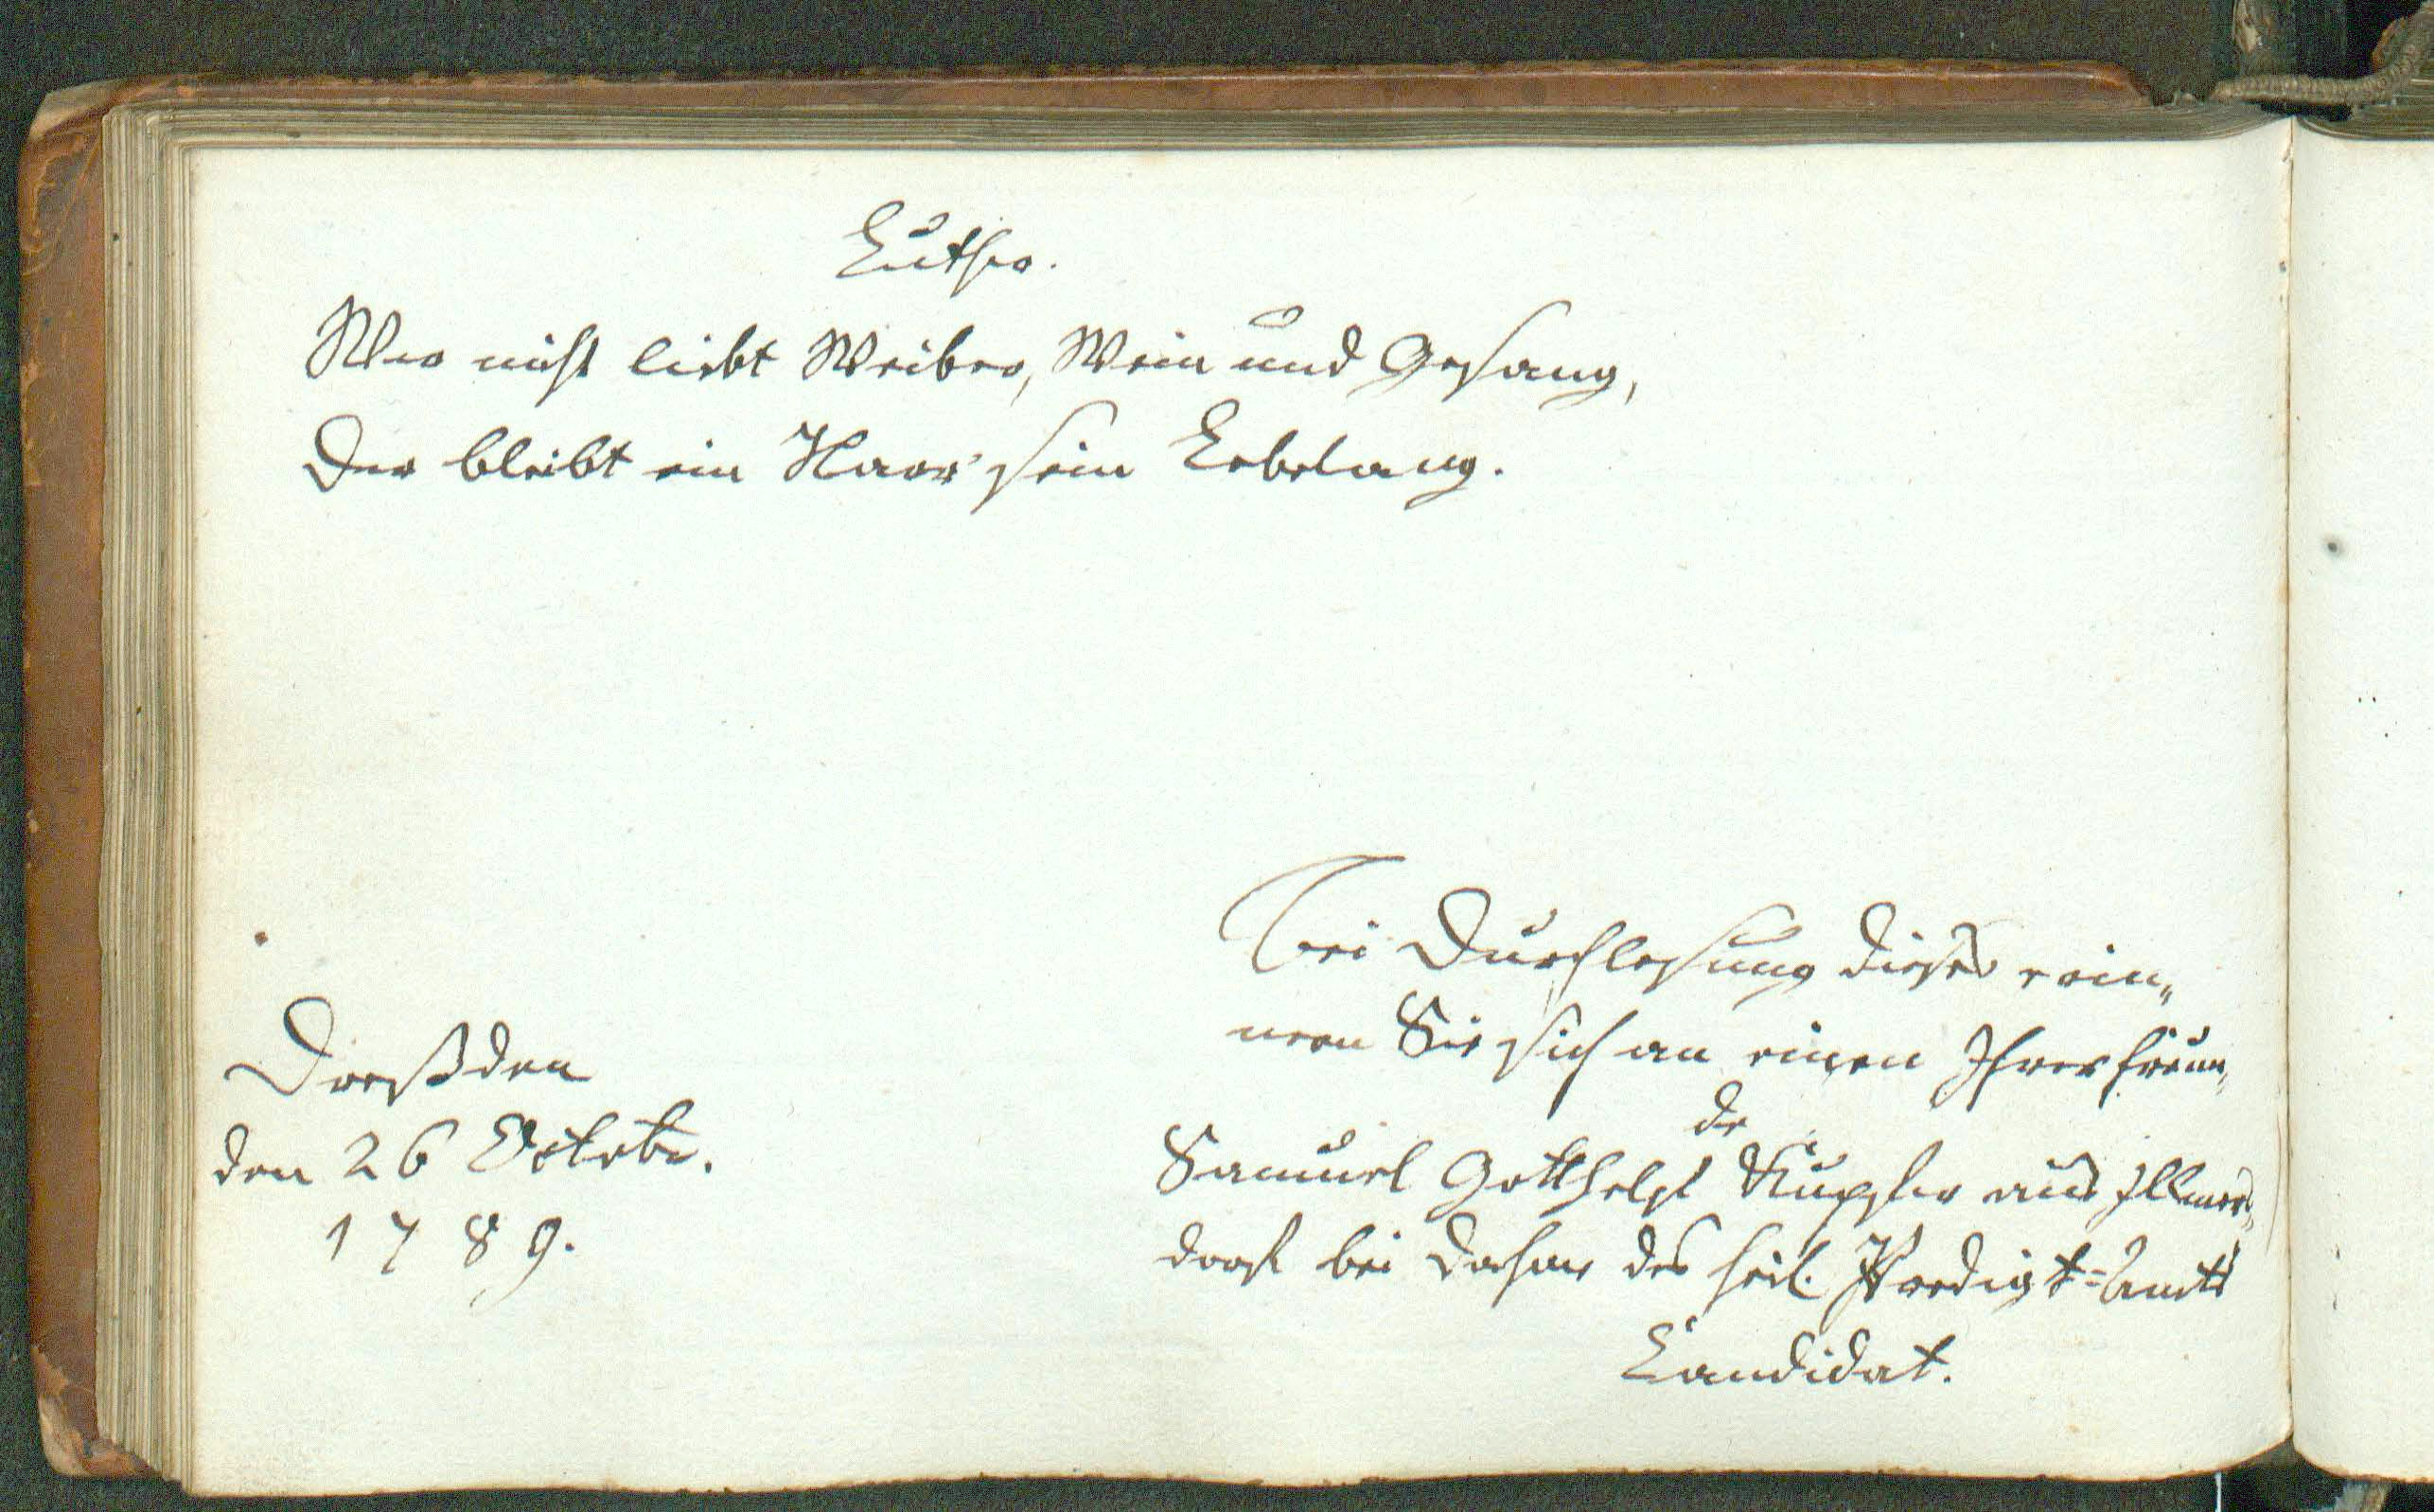 Luther.
Wer nicht liebt Weiber, Wein und Gesang,
Der bleibt ein Narr sein Lebelang.
Bei Durchlesung dieses erin„
nern Sie sich an einen Ihrer Freun„
de
Samuel Gotthelf aus Illmers„
dorf bei Dahme des heil. Predigt=Amts
Candidat.
Dreßden
den 26 Octobr.
1789.